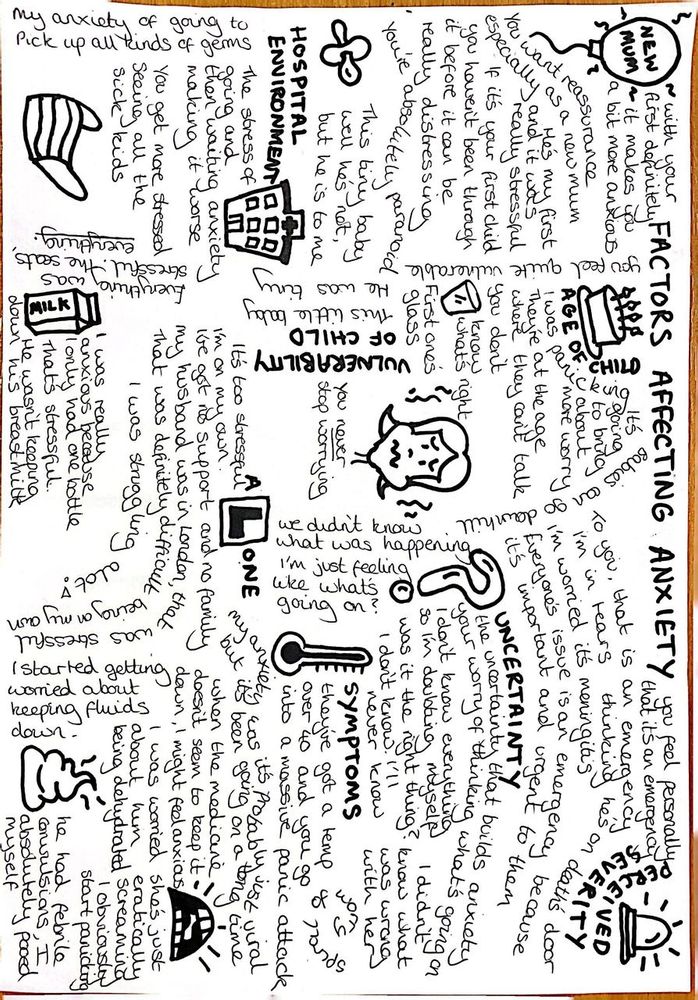 FACTORS AFFECTING ANXIETY
NEW
MUM
~with your
first definitely
~ it makes you
a bit more anxious
You want reassurance
especially as a new mum
He's my first
and it was
really stressful
If it's your first child
you haven't been through
it before it can be
really distressing
you're absolutely paranoid
AGE OF CHILD
It's going
to bring
panic
I was
more worry
They're at the age
where they can't talk
You don't
know
what's right
First ones
glass
you feel quite vulnerable
This tiny baby
well he's not,
but he is to me
He was tiny
This little baby
VULNERABILITY
OF CHILD
You never
stop worrying
HOSPITAL
ENVIRONMENT
My anxiety of going to
Pick up all kinds of germs
The stress of
going and
then waiting anxiety
making it worse
You get more stressed
seeing all the
sick kids
Everything was
stressful. The seats,
everything.
MILK
I was really
anxious because
I only had one bottle
That's stressful.
He wasn't keeping
down his breastmilk
ALONE
It's too stressful
I'm on my own.
I've got no support and no family
my husband was in London, that
that was definitely difficult
I was struggling alot!
was stressful being on my own
UNCERTAINTY
we didn't know
what was happening
I'm just feeling
like what's
going on?
the uncertainty that builds anxiety
your worry of thinking what's going on
I don't know everything
so I'm doubting myself
was it the right thing?
I don't know I'll
never know
I didn't
know what
was wrong
with her
PERCEIVED
SEVERITY
you feel personally
that it's an emergency
To you, that is an emergency
I'm in tears thinking he's on death's door
I'm worried it's meningitis
Everyone's issue is an emergency because
it's important and urgent to them
SYMPTOMS
they've got a temp
over 40 and you go
into a massive panic attack
my anxiety was it's probably just viral
but it's been going on a long time
when the medicine
doesn't seem to keep it
down, I might feel anxious
I started getting
worried about
keeping fluids
down.
I was worried
about him
being dehydrated
she's just
erratically
screaming
I obviously
start panicking
he had febrile
convulsions, I
absolutely pooed
myself